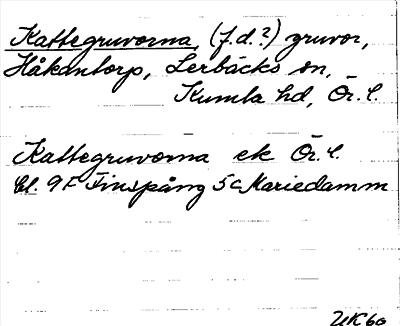 Kattegruvorna, (f.d.?) gruvor,
Håkantorp, Lerbäcks sn,
Kumla hd, Ör. l.
Kattegruvorna ek Ör. l.
bl. 9F Finspång 5c Mariedamm
UK60